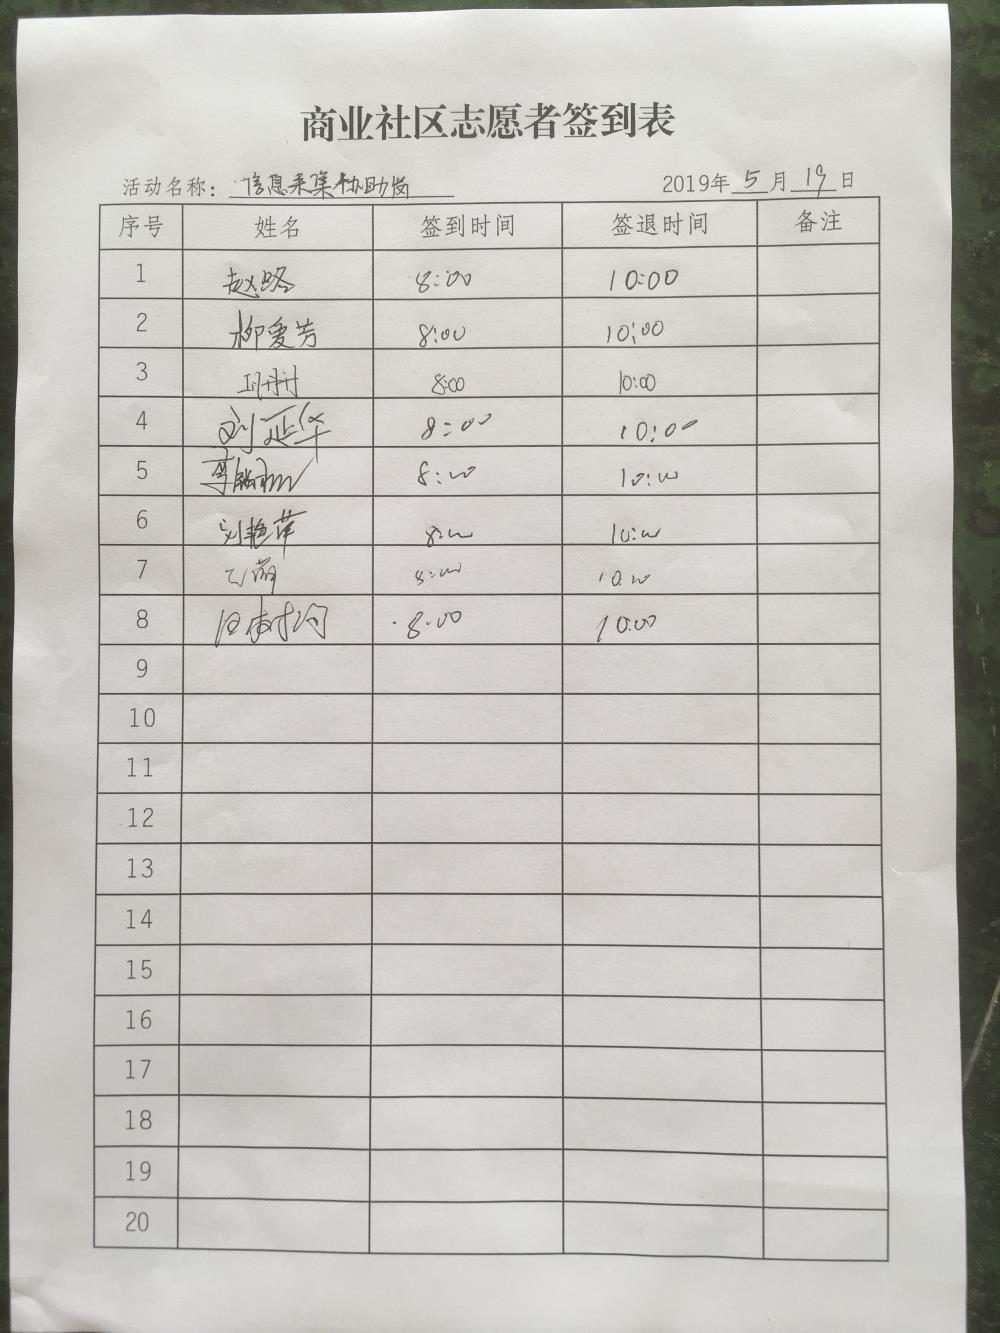 商业社区志愿者签到表
活动名称：信息采集协助岗 2019年5月19日
序号 姓名 签到时间 签退时间 备注
1 赵路 8:00 10:00
2 柳爱芳 8:00 10:00
3 8:00 10:00
4 刘延华 8:00 10:00
5 8:00 10:00
6 刘艳苹 8:00 10:00
7 8:00 10:00
8 8:00 10:00
9
10
11
12
13
14
15
16
17
18
19
20